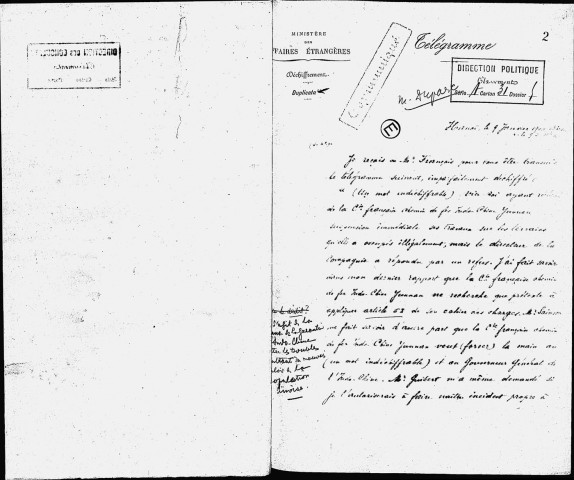 2
MINISTÈRE
DES
AFFAIRES ÉTRANGÈRES
Télégramme
Déchiffrement
Duplicata
Communiqué
DIRECTION POLITIQUE
Série A Carton 31 Dossier 1
M. Dupas
E
Hanoi, le 9 Janvier
Je reçois de Mr. François pour vous être transmis
le télégramme suivant, imparfaitement déchiffré
" (Un mot indéchiffrable) Vice Roi ayant
de la Cie française chemin de fer Indo-Chine Yunnan
suspension immédiate ses travaux sur les terrains
qu'elle a occupés illégalement, mais le directeur de la
Compagnie a répondu par un refus. J'ai fait savoir
dans mon dernier rapport que la Cie française chemin
de fer Indo-Chine Yunnan ne recherche que prétexte à
appliquer article 58 de son cahier des charges. Mr.
me fait savoir d'autre part que la Cie française chemin
de fer Indo-Chine Yunnan veut (forcer) la main au
(un mot indéchiffrable) et au Gouverneur Général de
l'Indo-Chine. Mr. Guibert m'a même demandé si
je l'autoriserais à faire naître incident propre à
de la
les troubles
de la
population
chinoise.